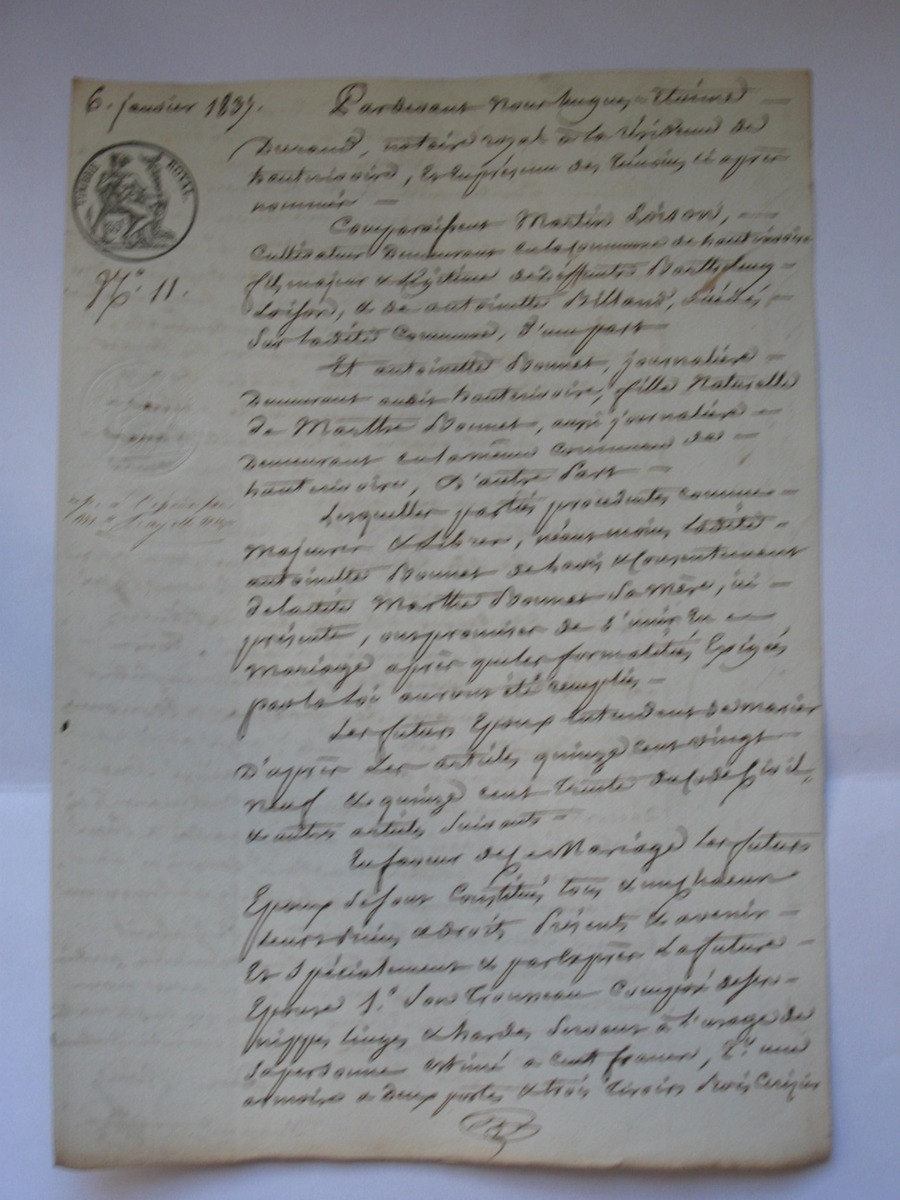 6. Janvier 1837.
TIMBRE ROYAL
N.° 11.
Pardevant nous hugues-Etienne
Durand, notaire royal à la résidence de
hauterivoire, Et En présence des témoins ci après
nommés
Comparaissent Martin Loison,
Cultivateur Demeurant en la Commune de hauterivoire
fils majeur & légitime de Deffunts Barthelemy
Loison, & de antoinette Billaud, décédés,
Sur ladite Commune, D'une part
Et antoinette Bonnet, journalière
Demeurant audit hauterivoire, fille Naturelle
de Marthe Bonnet, aussi journalière
Demeurant en la même Commune de
hauterivoire, D'autre Part
Lesquelles parties procedantes comme
Majeures & Libres, néanmoins ladite
antoinette Bonnet de l'avis & Consentement
de ladite Marthe Bonnet Sa Mère, ici
présente, ont promises de s'unir En
Mariage après que les formalités Exigées
par la loi auront été remplies
Les futurs Epoux Entendent Se Marier
D'après Les articles quinze cent vingt
neuf & quinze cent trente du Code Civil,
& autres articles Suivants
En faveur de ce Mariage les futurs
Epoux Se Sont Constitués tous & un chacun
leurs Biens & Droits Présents & avenir
Et Spécialement & par Exprès La future
Epouse 1.° Son Trousseau Composé de ses
nippes linges & hardes Servant à l'usage de
Sa personne Estimé a cent francs, 2.° une
armoire a Deux portes & trois tiroirs Bois Cerisier